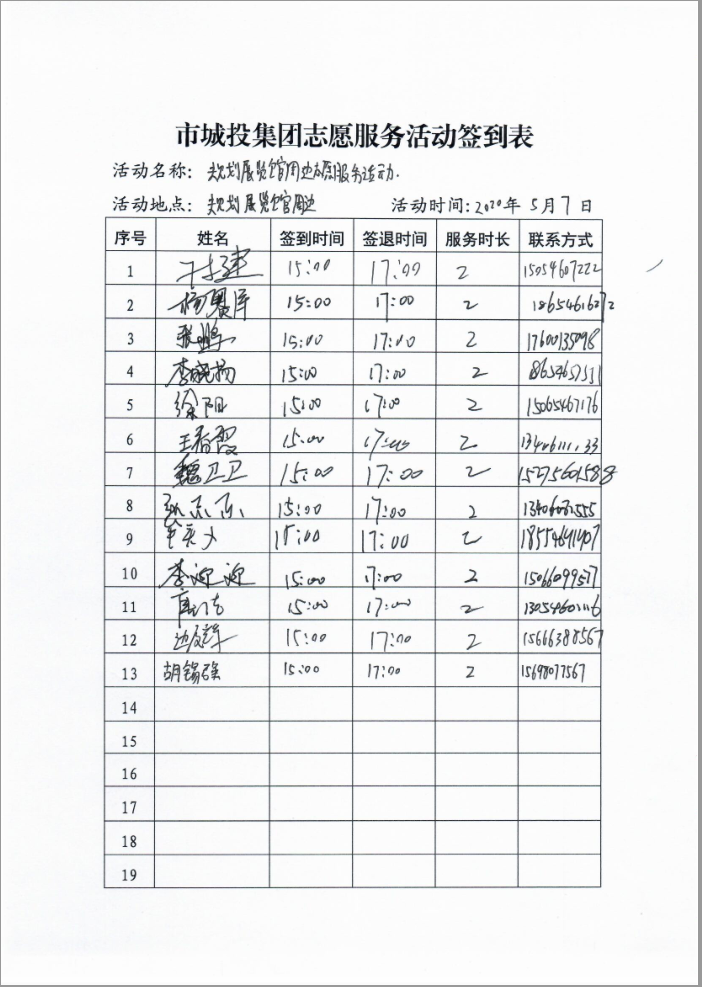 市城投集团志愿服务活动签到表
活动名称: 规划展览馆周边志愿服务活动.
活动地点: 规划展览馆周边 活动时间: 2020年 5月7日
序号 姓名 签到时间 签退时间 服务时长 联系方式
1 15:00 17:00 2 15054607222
2 15:00 17:00 2
3 张鹏 15:00 17:00 2 17600135098
4 李晓梅 15:00 17:00 2
5 徐阳 15:00 17:00 2 15065467176
6 王春霞 15:00 17:00 2
7 魏卫卫 15:00 17:00 2 15275601588
8 15:00 17:00 2
9 15:00 17:00 2
10 李迎迎 15:00 17:00 2 15066099577
11 15:00 17:00 2
12 15:00 17:00 2 15666388567
13 胡锡强 15:00 17:00 2 15698077567
14
15
16
17
18
19